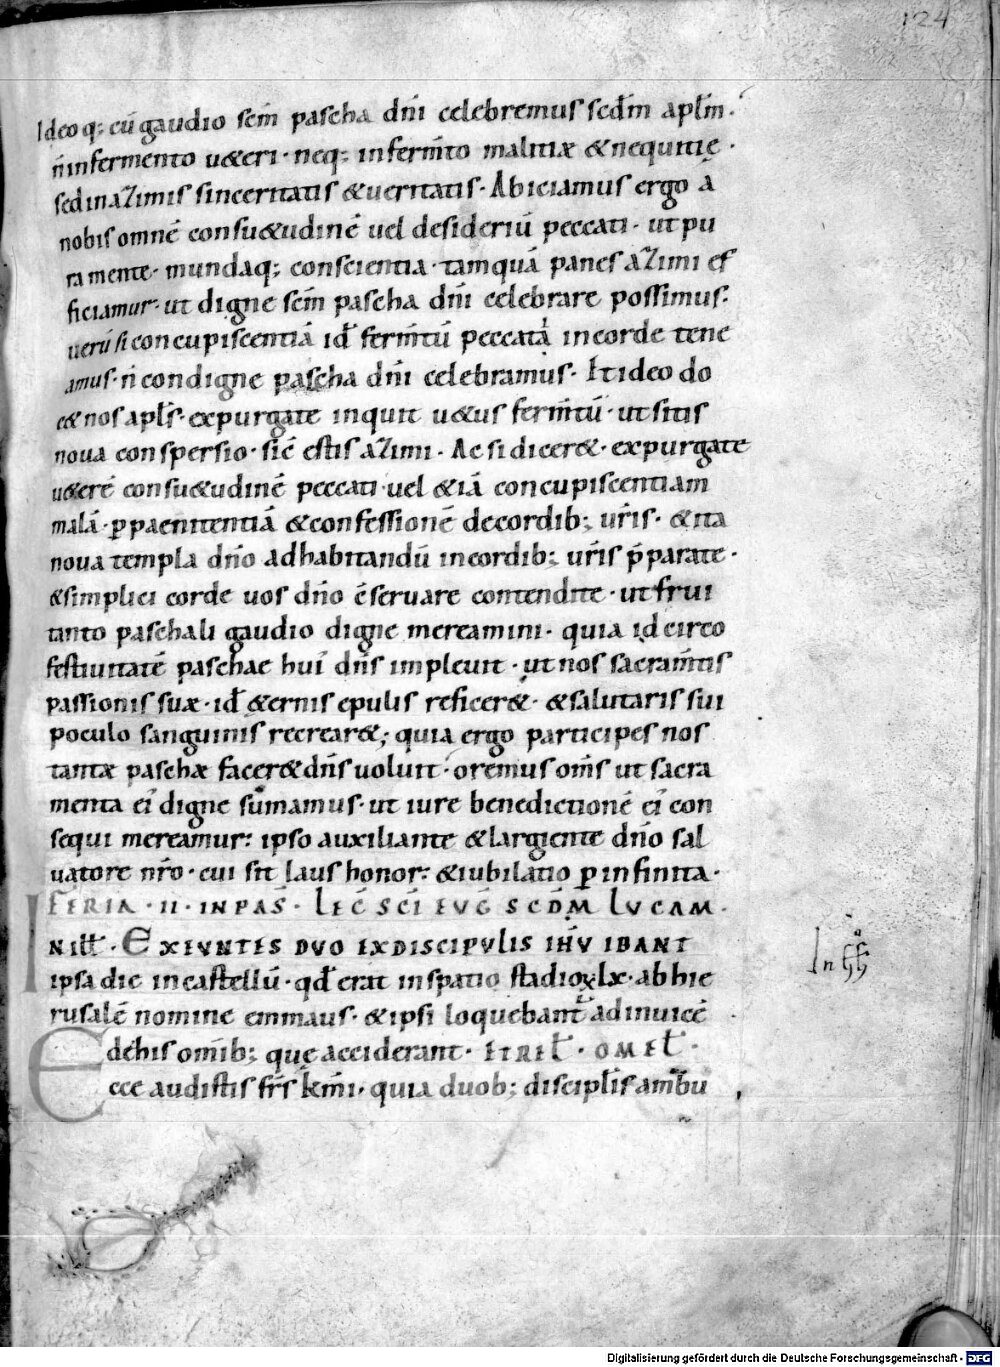 124
Ideoq; cū gaudio scm̄ pascha dn̄i celebremus scd̄m apl̄m.
n̄ in fermento u&eri · neq; in ferm̄to malitiæ & nequitię ·
sed in azimis sinceritatis & ueritatis · Abiciamus ergo a
nobis omnē consu&udinē uel desideriū peccati · ut pu
ra mente · mundaq; conscientia · tamquā panes azimi ef
ficiamur · ut digne scm̄ pascha dn̄i celebrare possimus:
uerū si concupiscentiā id ̄ ferm̄tū peccati in corde tene
amus · n̄ condigne pascha dn̄i celebramus · Et ideo do
c& nos apl̄s · expurgate inquit u&us ferm̄tū · ut sitis
noua conspersio · sic̄ estis azimi · Ac si dicer& · expurgate
u&erē consu&udinē peccati uel &iā concupiscentiam
malā · p̱ paenitentiā & confessionē de cordib; ur̄is · & ita
noua templa dn̄o ad habitandū in cordib; ur̄is p̄parate ·
& simplici corde uos dn̄o c̄seruare contendite · ut frui
tanto paschali gaudio digne mereamini · quia idcirco
festiuitatē paschae hui' dn̄s impleuit · ut nos sacram̄tis
passionis suæ · id ̄ &ernis epulis reficer& · & salutaris sui
poculo sanguinis recrear&; quia ergo participes nos
tantæ paschæ facer& dn̄s uoluit · oremus om̄s ut sacra
menta ei' digne sumamus · ut iure benedictionē ei' con
sequi mereamur: ipso auxiliante & largiente dn̄o sal
uatore nr̄o · cui sit laus honor: & iubilatio p̱ infinita ·
FERIA · II · IN PAS̄ · LEC̄ SC̄I EVḠ SCD̄M LVCAM ·
IN ILL̄ · EXEVNTES DVO EX DISCIPVLIS IH̄V IBANT
ipsa die in castellū · qd̄ erat in spatio stadioꝝ lx · ab hie
rusalē nomine emmaus · & ipsi loquebant᷑ ad inuicē
de his om̄ib; quę acciderant · ET REL̄ · OMEL̄ ·
Ecce audistis fr̄s km̄i · quia duob; discipl̄is ambu